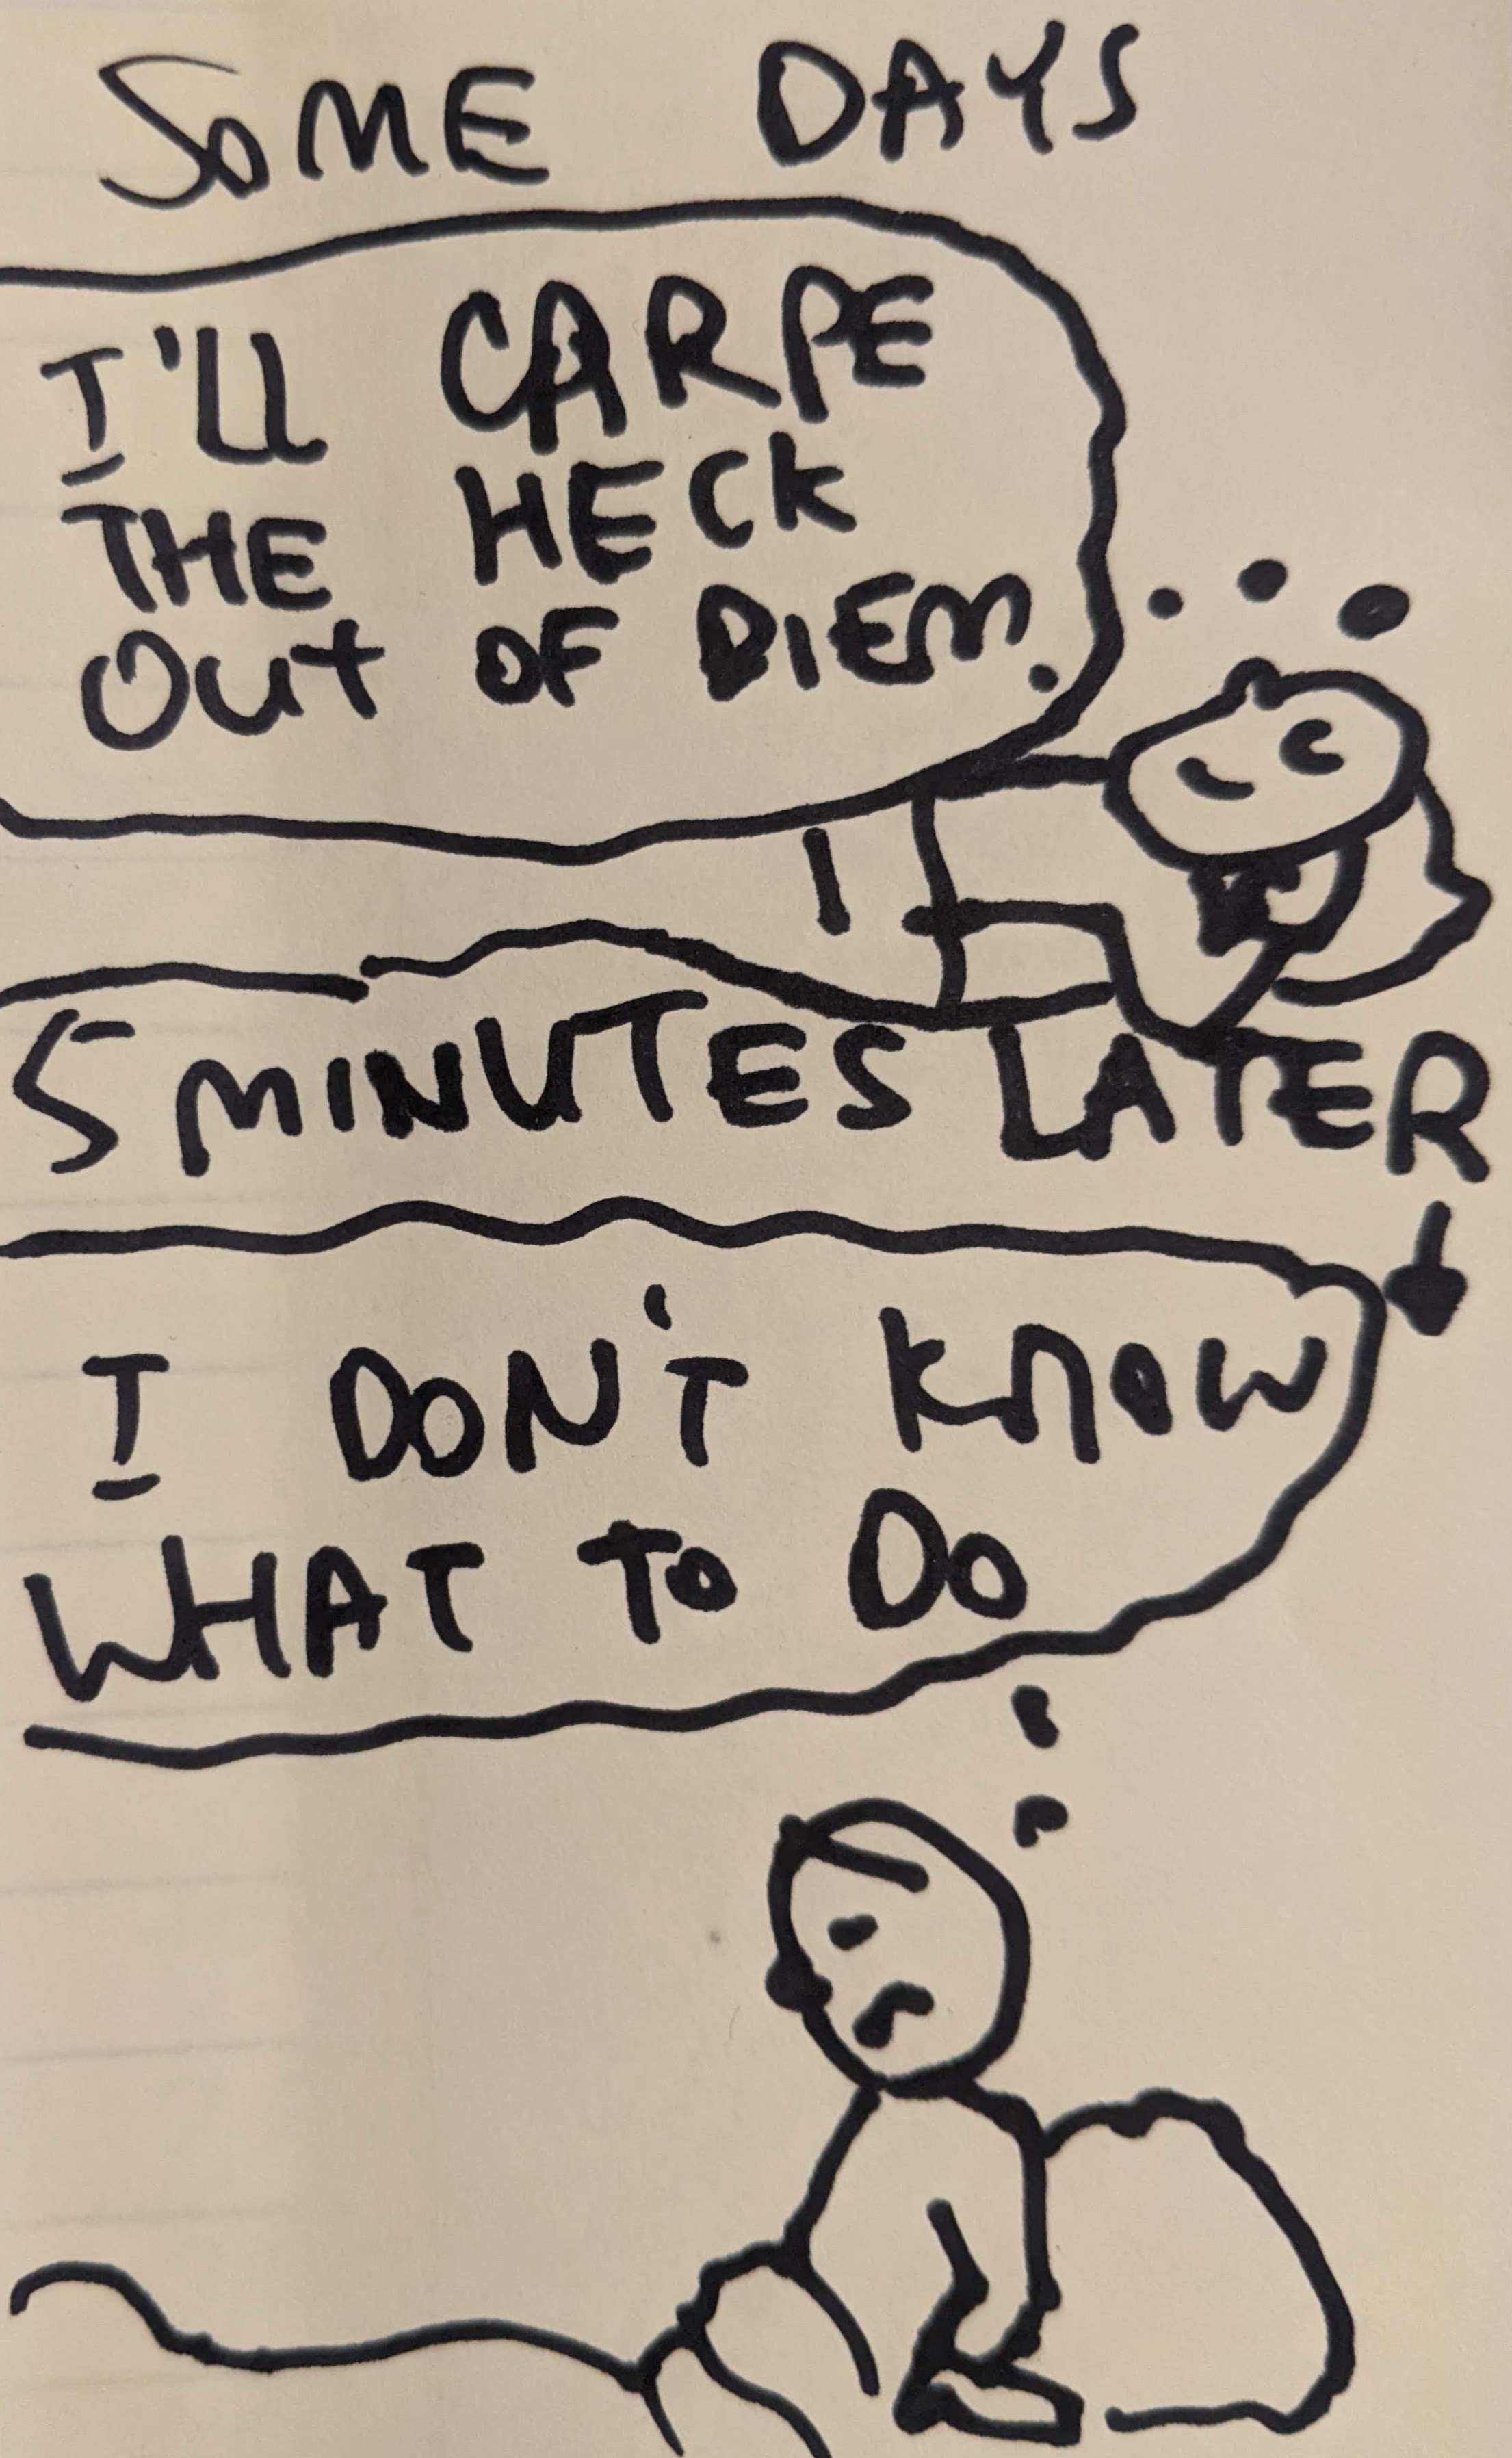 SOME DAYS
I'LL CARPE
THE HECK
OUT OF DIEM.
5 MINUTES LATER
I DON'T KNOW
WHAT TO DO